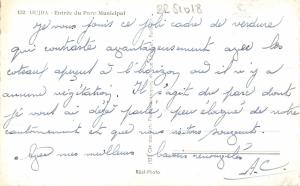 132 OUJDA - Entrée du Parc Municipal
Je vous envoie ce joli cadre de verdure
qui contraste avantageusement avec les
coteaux aperçus à l'horizon où il n'y a
aucune végétation. Il s'agit du parc dont
je vous ai déjà parlé, peu éloigné de notre
cantonnement et que nous visitons souvent.
Avec mes meilleurs baisers renouvelés
A.C.
Réal-Photo